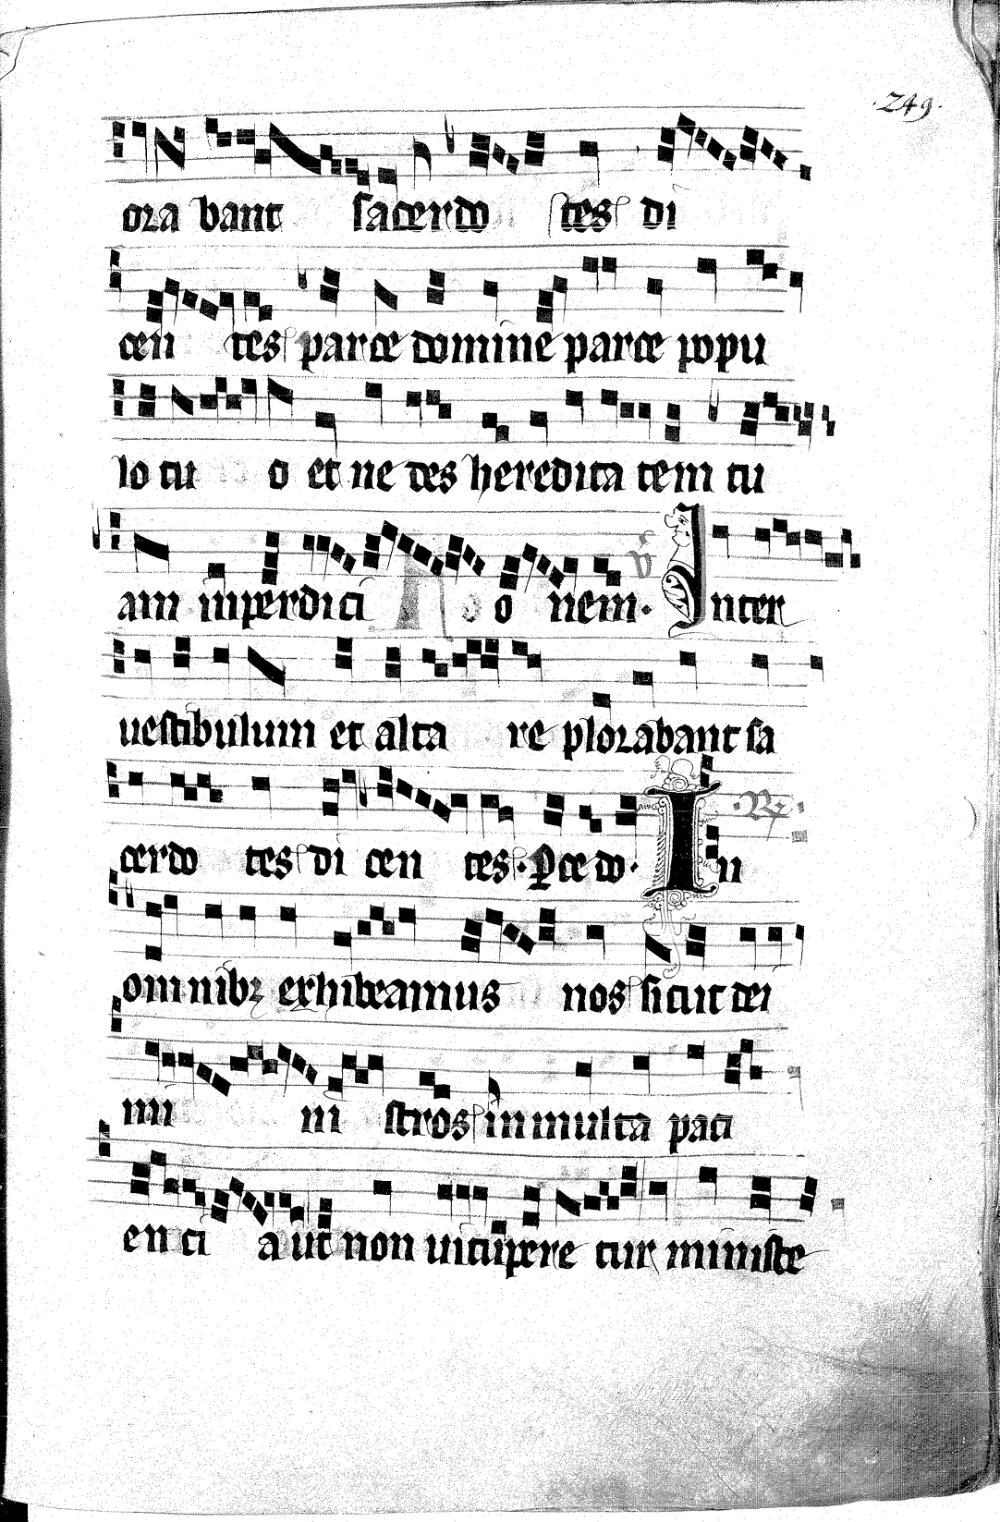 ·249·
ora bant sacerdo tes di
cen tes parce domine parce popu
lo tu o et ne des heredita tem tu
am in perdici o nem· ℣ Inter
uestibulum et alta re plorabant sa
cerdo tes di cen tes· ꝑce do· ·℟· In
omnibꝫ exhibeamus nos sicut dei
mi ni stros in multa paci
en ci a ut non uitupere tur ministe